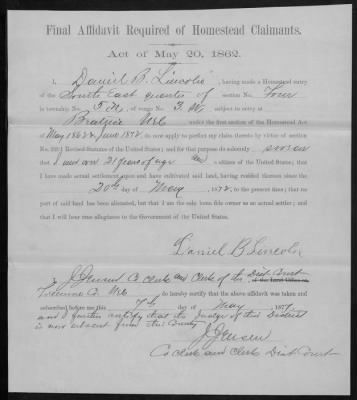 Final Affidavit Required of Homestead Claimants.
Act of May 20, 1862.
I, Daniel B. Lincoln, having made a Homestead entry
of the South East quarter of section No. Four
in township No. 5 N, of range No. 3 W subject to entry at
Beatrice Neb under the first section of the Homestead Act
of May 1862 & June 1872, do now apply to perfect my claim thereto by virtue of section
No. 2291 Revised Statutes of the United States; and for that purpose do solemnly sworn
that I am over 21 years of age and a citizen of the United States; that I
have made actual settlement upon and have cultivated said land, having resided thereon since the
20th day of May, 1872, to the present time; that no
part of said land has been alienated, but that I am the sole bona fide owner as an actual settler; and
that I will bear true allegiance to the Government of the United States.
Daniel B Lincoln
I, J. Jensen Co clerk and Clerk of the Dist Court
Co. Neb do hereby certify that the above affidavit was taken and
subscribed before me this 7th day of May, 1877
and I further certify that the Judge of this District
is now absent from this County
J. Jensen
Co Clerk and Clerk Dist Court